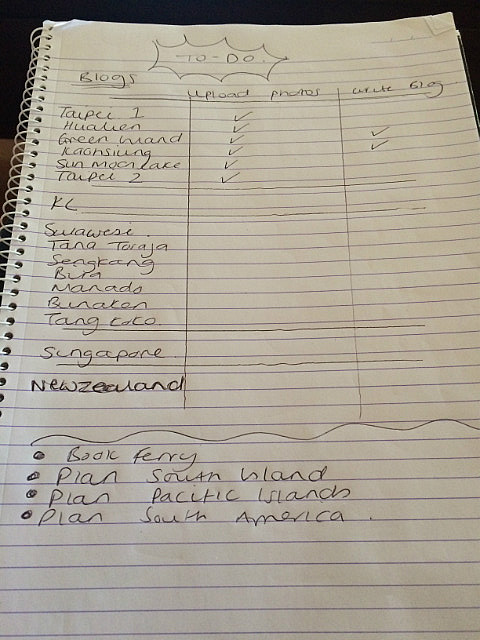 TO-DO.
Blogs
upload photos write Blog
Taipei 1 ✓
Hualien ✓
Green Island ✓ ✓
Kaohsiung ✓ ✓
Sun Moon Lake ✓
Taipei 2 ✓
KL
Sulawesi.
Tana Toraja
Sengkang
Bira
Manado
Bunaken
Tang koko
Singapore
New Zealand
• Book ferry
• Plan South Island
• Plan Pacific Islands
• Plan South America.